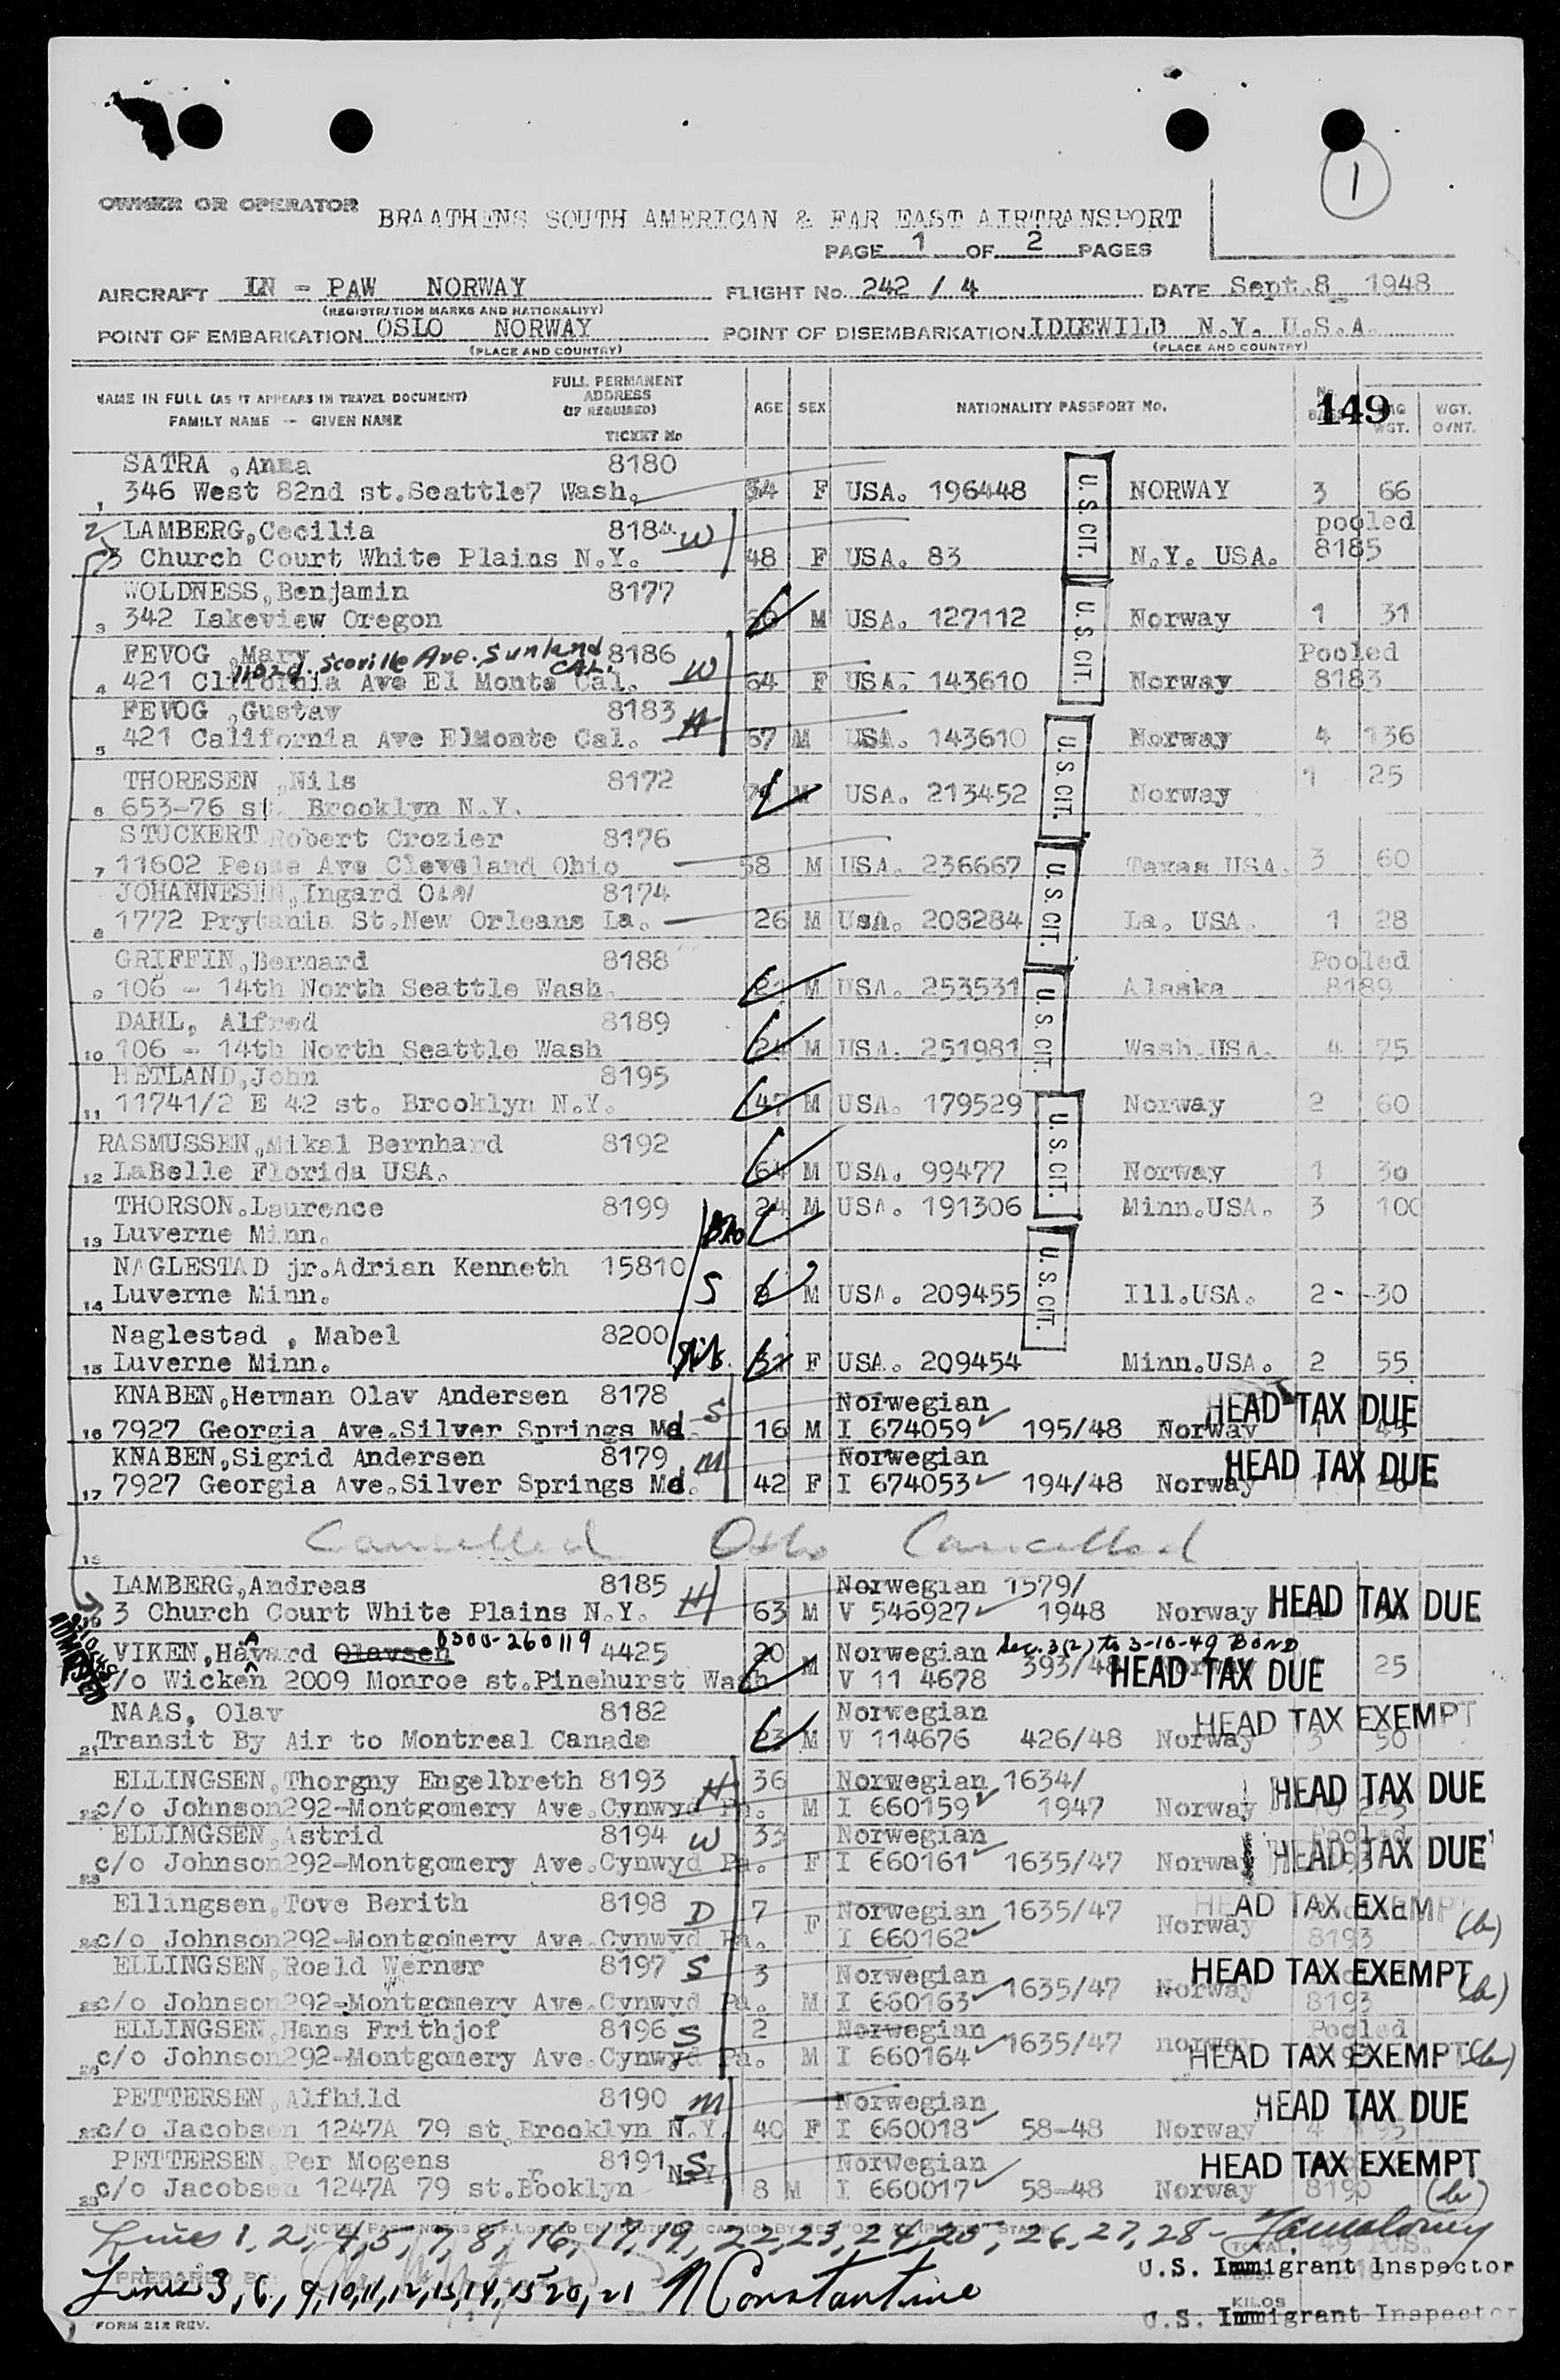 1
OWNER OR OPERATOR BRAATHENS SOUTH AMERICAN & FAR EAST AIRTRANSPORT
PAGE 1 OF 2 PAGES
AIRCRAFT LN - PAW NORWAY FLIGHT No. 242 / 4 DATE Sept.8 1948
(REGISTRATION MARKS AND NATIONALITY)
POINT OF EMBARKATION OSLO NORWAY POINT OF DISEMBARKATION IDLEWILD N.Y. U.S.A.
(PLACE AND COUNTRY) (PLACE AND COUNTRY)
NAME IN FULL (AS IT APPEARS IN TRAVEL DOCUMENT) FULL PERMANENT ADDRESS (IF REQUIRED) AGE SEX NATIONALITY PASSPORT No. 149 WGT. WGT. O/NT.
FAMILY NAME -- GIVEN NAME
TICKET No
SATRA ,Anna 8180
1 346 West 82nd st.Seattle7 Wash. 34 F USA. 196448 U.S.CIT. NORWAY 3 66
2 LAMBERG,Cecilia 8184 W pooled
3 Church Court White Plains N.Y. 48 F USA. 83 N.Y. USA. 8185
WOLDNESS,Benjamin 8177
3 342 Lakeview Oregon M USA. 127112 U.S.CIT. Norway 1 31
FEVOG ,Mary 8186 W Pooled
Scoville Ave. Sunland CAL.
4 421 Clifornia Ave El Monte Cal. 64 F USA. 143610 Norway 8183
FEVOG ,Gustav 8183 H
5 421 California Ave ElMonte Cal. 67 M USA. 143610 U.S.CIT. Norway 4 136
THORESEN ,Nils 8172 1 25
6 653-76 st. Brooklyn N.Y. M USA. 213452 Norway
STUCKERT Robert Crozier 8176
7 11602 Pease Ave Cleveland Ohio 58 M USA. 236667 U.S.CIT. Texas USA. 3 60
JOHANNESEN,Ingard Olav 8174
8 1772 Prytania St.New Orleans La. 26 M UsA. 208284 La. USA. 1 28
GRIFFIN,Bernard 8188 Pooled
9 106 - 14th North Seattle Wash. 21 M USA. 253531 U.S.CIT. Alaska 8189
DAHL, Alfred 8189
10 106 - 14th North Seattle Wash 24 M USA. 251981 Wash.USA. 4 75
HETLAND,John 8195
11 11741/2 E 42 st. Brooklyn N.Y. 47 M USA. 179529 U.S.CIT. Norway 2 60
RASMUSSEN,Mikal Bernhard 8192
12 LaBelle Florida USA. 64 M USA. 99477 Norway 1 30
THORSON.Laurence 8199 24 M USA. 191306 Minn.USA. 3 100
13 Luverne Minn. Bro
NAGLESTAD jr.Adrian Kenneth 15810
14 Luverne Minn. S M USA. 209455 U.S.CIT. Ill.USA. 2 - -30
Naglestad , Mabel 8200
15 Luverne Minn. Sis. 31 F USA. 209454 Minn.USA. 2 55
KNABEN,Herman Olav Andersen 8178 S Norwegian HEAD TAX DUE
16 7927 Georgia Ave.Silver Springs Md. 16 M I 674059 195/48 Norway
KNABEN,Sigrid Andersen 8179 M Norwegian HEAD TAX DUE
17 7927 Georgia Ave.Silver Springs Md. 42 F I 674053 194/48 Norway
Cancelled Oslo Cancelled
LAMBERG,Andreas 8185 H Norwegian 1579/
3 Church Court White Plains N.Y. 63 M V 546927 1948 Norway HEAD TAX DUE
ADMITTED
VIKEN,Hávard Olavsen 0300-260119 4425 20 M Norwegian Sec. 3(2) to 3-10-49 BOND
c/o Wicken 2009 Monroe st.Pinehurst Wash V 11 4678 393/48 HEAD TAX DUE 25
NAAS, Olav 8182 Norwegian HEAD TAX EXEMPT
21 Transit By Air to Montreal Canada 23 M V 114676 426/48 Norway 3 50
ELLINGSEN,Thorgny Engelbreth 8193 H 36 Norwegian 1634/ HEAD TAX DUE
22 c/o Johnson292-Montgomery Ave.Cynwyd Pa. M I 660159 1947 Norway
ELLINGSEN,Astrid 8194 W 33 Norwegian
23 c/o Johnson292-Montgomery Ave.Cynwyd Pa. F I 660161 1635/47 Norway HEAD TAX DUE
Ellingsen,Tove Berith 8198 D 7 Norwegian 1635/47 HEAD TAX EXEMPT
24 c/o Johnson292-Montgomery Ave.Cynwyd Pa. F I 660162 Norway 8193 (b)
ELLINGSEN,Roald Werner 8197 S 3 Norwegian 1635/47 HEAD TAX EXEMPT
25 c/o Johnson292-Montgomery Ave.Cynwyd Pa. M I 660163 Norway 8193 (b)
ELLINGSEN,Hans Frithjof 8196 S 2 Norwegian 1635/47 norway Pooled
26 c/o Johnson292-Montgomery Ave.Cynwyd Pa. M I 660164 HEAD TAX EXEMPT (b)
PETTERSEN,Alfhild 8190 M Norwegian HEAD TAX DUE
27 c/o Jacobsen 1247A 79 st.Brooklyn N.Y. 40 F I 660018 58-48 Norway
PETTERSEN,Per Mogens 8191 S Norwegian HEAD TAX EXEMPT
c/o Jacobsen 1247A 79 st.Booklyn N.Y. 8 M I 660017 58-48 Norway 8190 (b)
Lines 1, 2, 4, 5, 7, 8, 16, 17, 19, 22, 23, 24, 25, 26, 27, 28 -
TOTAL 49 PCS.
U.S. Immigrant Inspector
PREPARED BY:
Lines 3, 6, 9, 10, 11, 12, 13, 14, 15 20, 21 N Constantine
KILOS
U.S. Immigrant Inspector
FORM 212 REV.